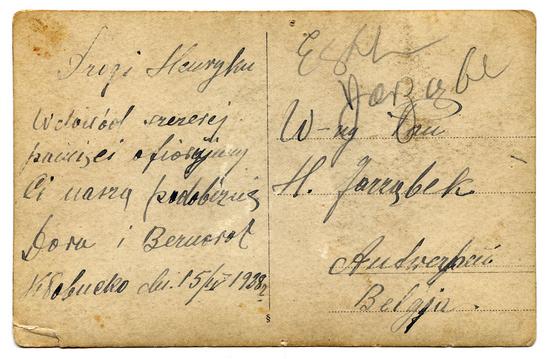 Drogi Henryku
W dowód szczerej
pamięci ofiarujemy
Ci naszą podobiznę
Dora i Bernard
Kłobucko dn. 15/IV 1938 r
W-ny Pan
H. Jarząbek
Antwerpen
Belgja.